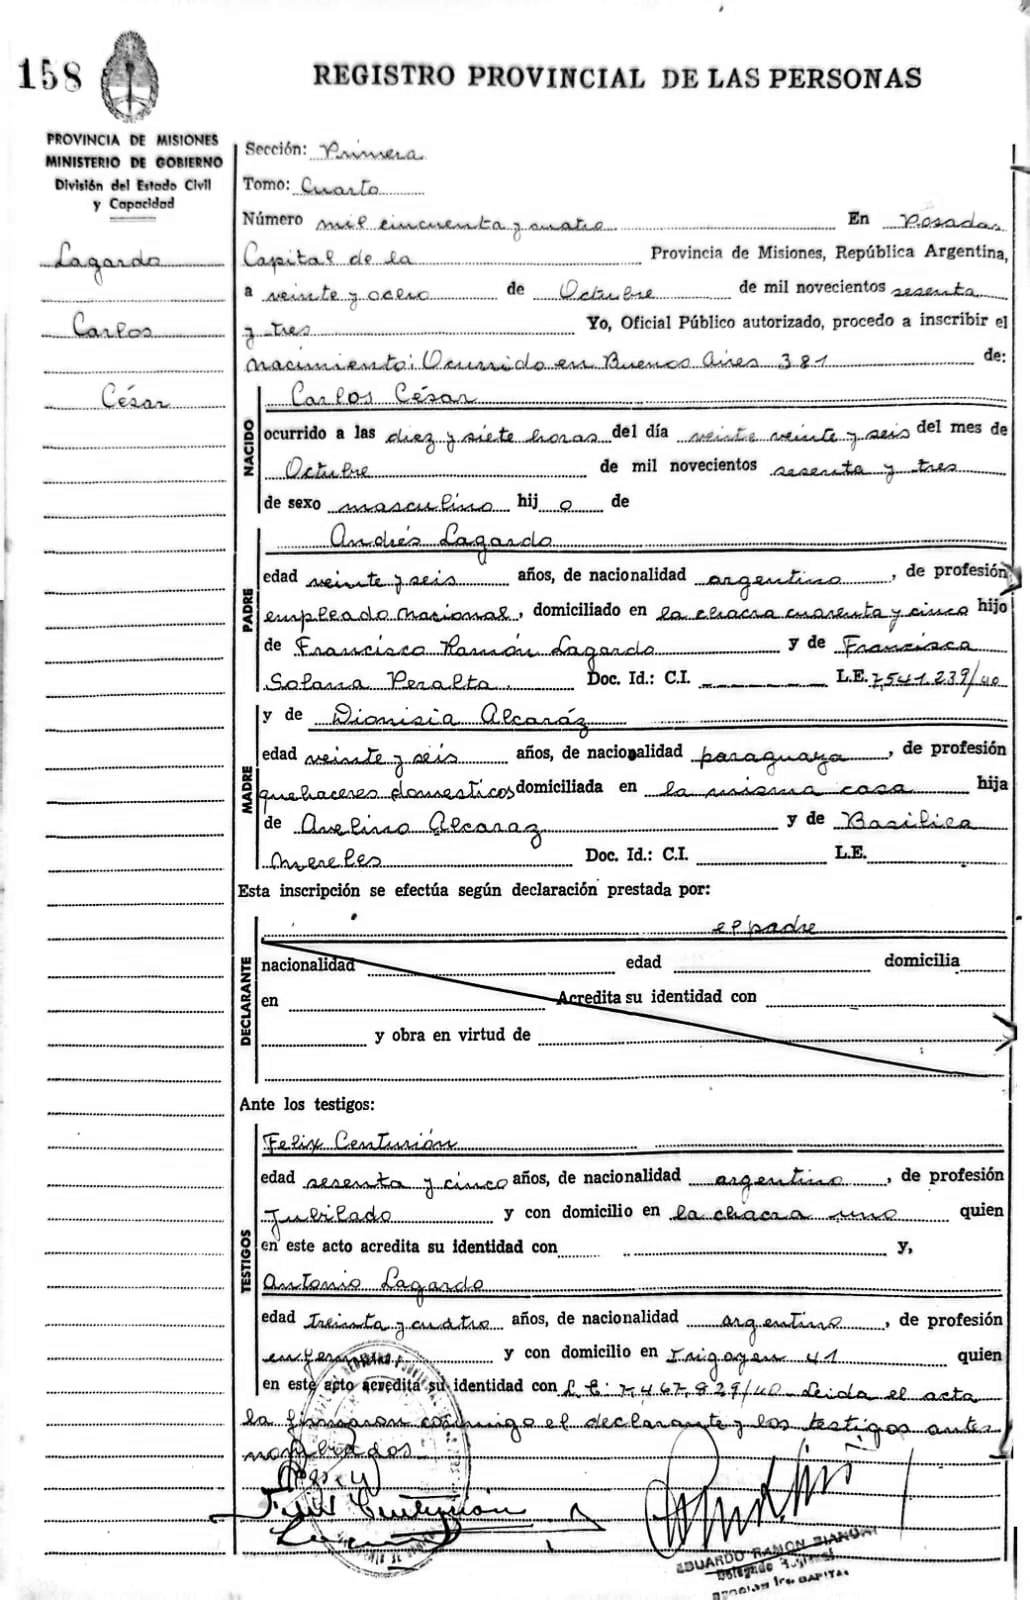 158
REGISTRO PROVINCIAL DE LAS PERSONAS
PROVINCIA DE MISIONES
MINISTERIO DE GOBIERNO
División del Estado Civil
y Capacidad
Lagardo
Carlos
César
Sección: Primera
Tomo: Cuarto
Número mil cincuenta y cuatro En Posadas
Capital de la Provincia de Misiones, República Argentina,
a veinte y ocho de Octubre de mil novecientos sesenta
y tres Yo, Oficial Público autorizado, procedo a inscribir el
nacimiento: Ocurrido en Buenos Aires 381 de:
NACIDO
Carlos César
ocurrido a las diez y siete horas del día veinte veinte y seis del mes de
Octubre de mil novecientos sesenta y tres
de sexo masculino hij o de
PADRE
Andrés Lagardo
edad veinte y seis años, de nacionalidad argentino, de profesión
empleado nacional, domiciliado en la chacra cuarenta y cinco hijo
de Francisco Ramón Lagardo y de Francisca
Solana Peralta. Doc. Id.: C.I. L.E. 7541.239/40
MADRE
y de Dionisia Alcaráz
edad veinte y seis años, de nacionalidad paraguaya, de profesión
quehaceres domesticos domiciliada en la misma casa hija
de Avelino Alcaraz y de Basilica
Mereles Doc. Id.: C.I. L.E.
Esta inscripción se efectúa según declaración prestada por:
DECLARANTE
el padre
nacionalidad edad domicilia
en Acredita su identidad con
y obra en virtud de
Ante los testigos:
TESTIGOS
Felix Centurión
edad sesenta y cinco años, de nacionalidad argentino, de profesión
Jubilado y con domicilio en la chacra uno quien
en este acto acredita su identidad con y,
Antonio Lagardo
edad treinta y cuatro años, de nacionalidad argentino, de profesión
enfermero y con domicilio en Irigoyen 41 quien
en este acto acredita su identidad con L.E. 7.467.829/40 Leida el acta
la firmaron conmigo el declarante y los testigos antes
nombrados
Felix Centurión
EDUARDO RAMON
Delegado
CAPITAL